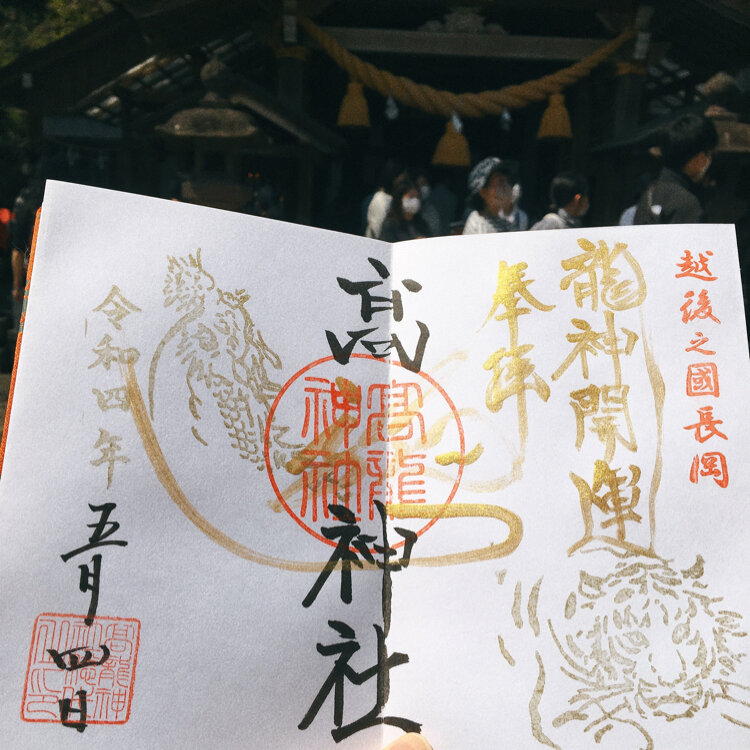 越後之國長岡
龍神開運
奉拝
高龍神社
高龍
神社
令和四年
五月四日